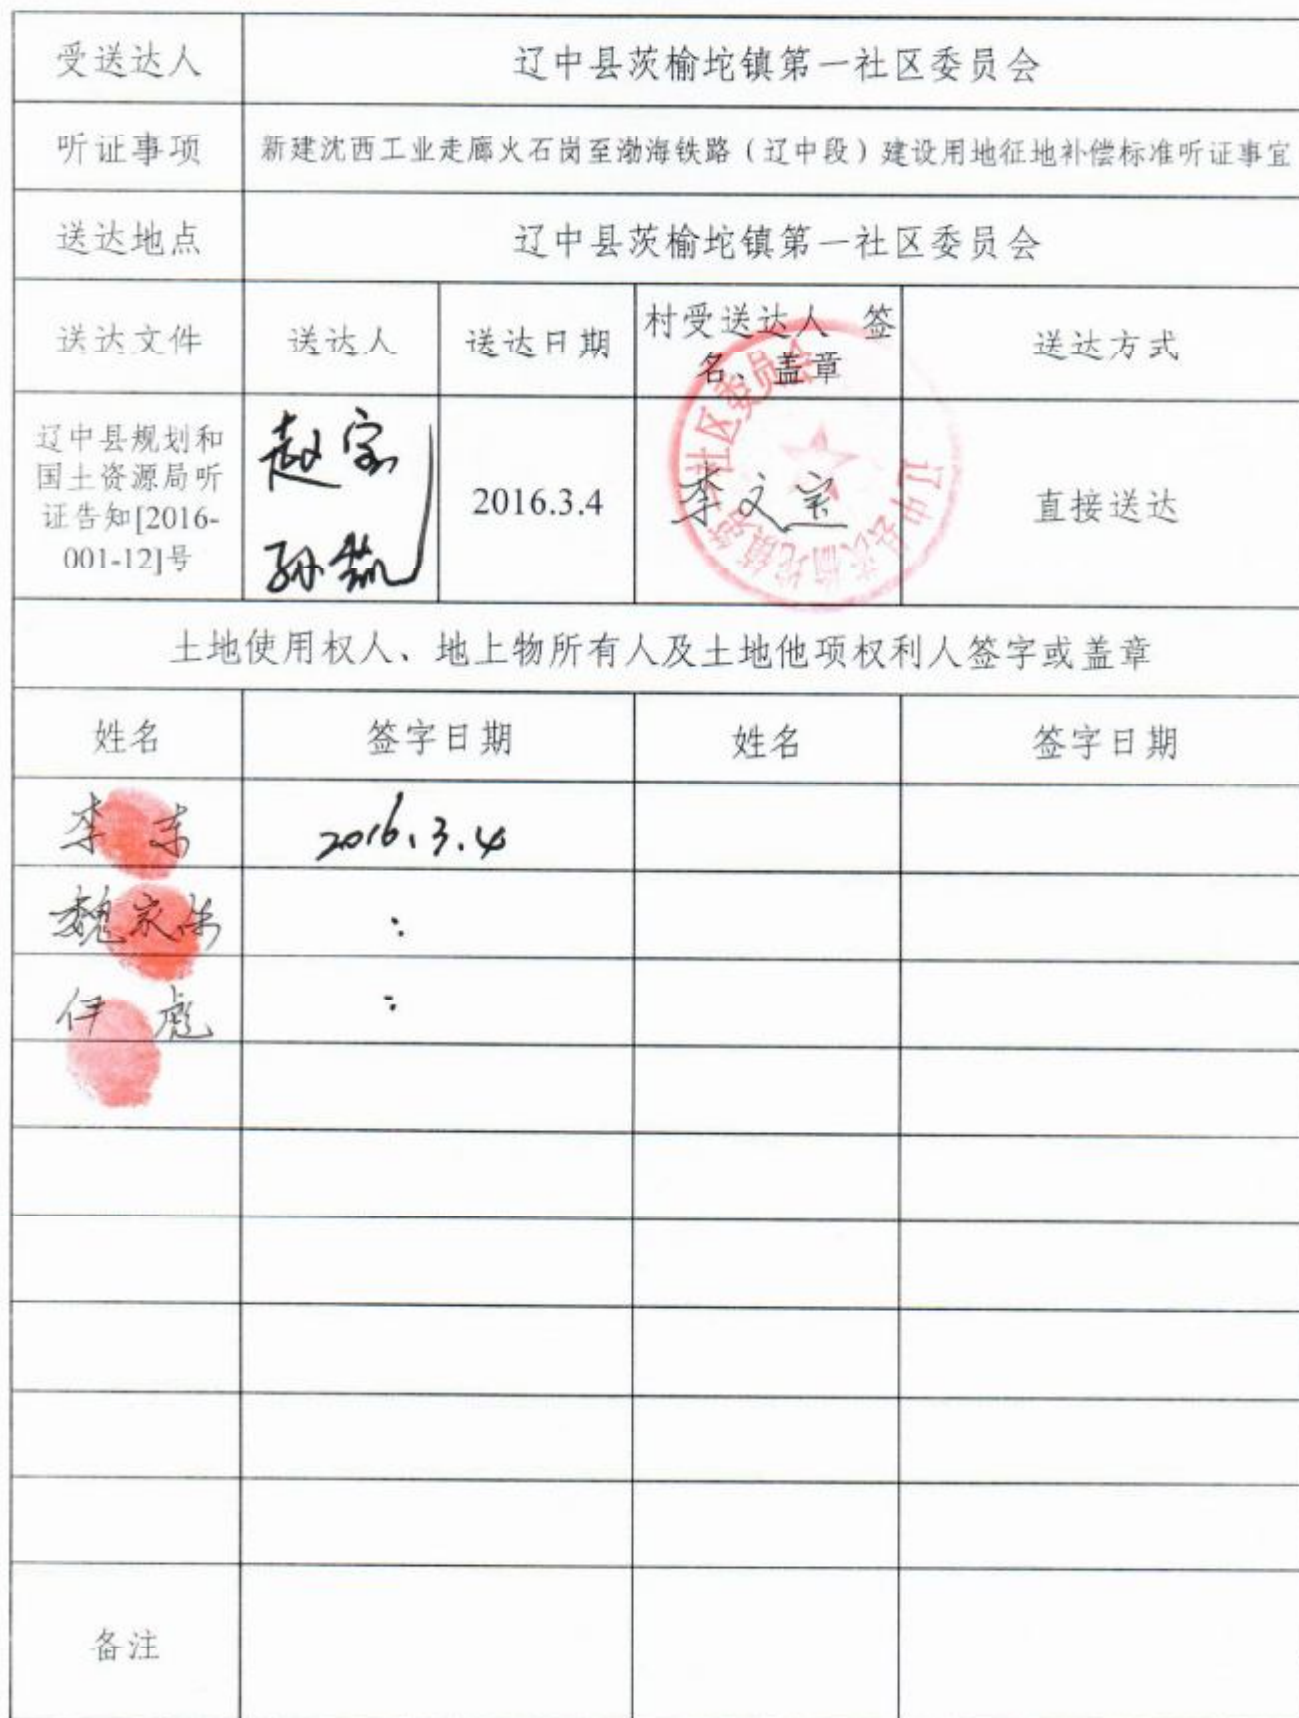 受送达人 辽中县茨榆坨镇第一社区委员会
听证事项 新建沈西工业走廊火石岗至渤海铁路（辽中段）建设用地征地补偿标准听证事宜
送达地点 辽中县茨榆坨镇第一社区委员会
送达文件 送达人 送达日期 村受送达人 签名、盖章 送达方式
辽中县规划和
国土资源局听
证告知[2016-
001-12]号
赵
孙凯
2016.3.4
李文宝
辽中县茨榆坨镇第一社区委员会
直接送达
土地使用权人、地上物所有人及土地他项权利人签字或盖章
姓名 签字日期 姓名 签字日期
李东 2016.3.4
魏家
伊彪
备注